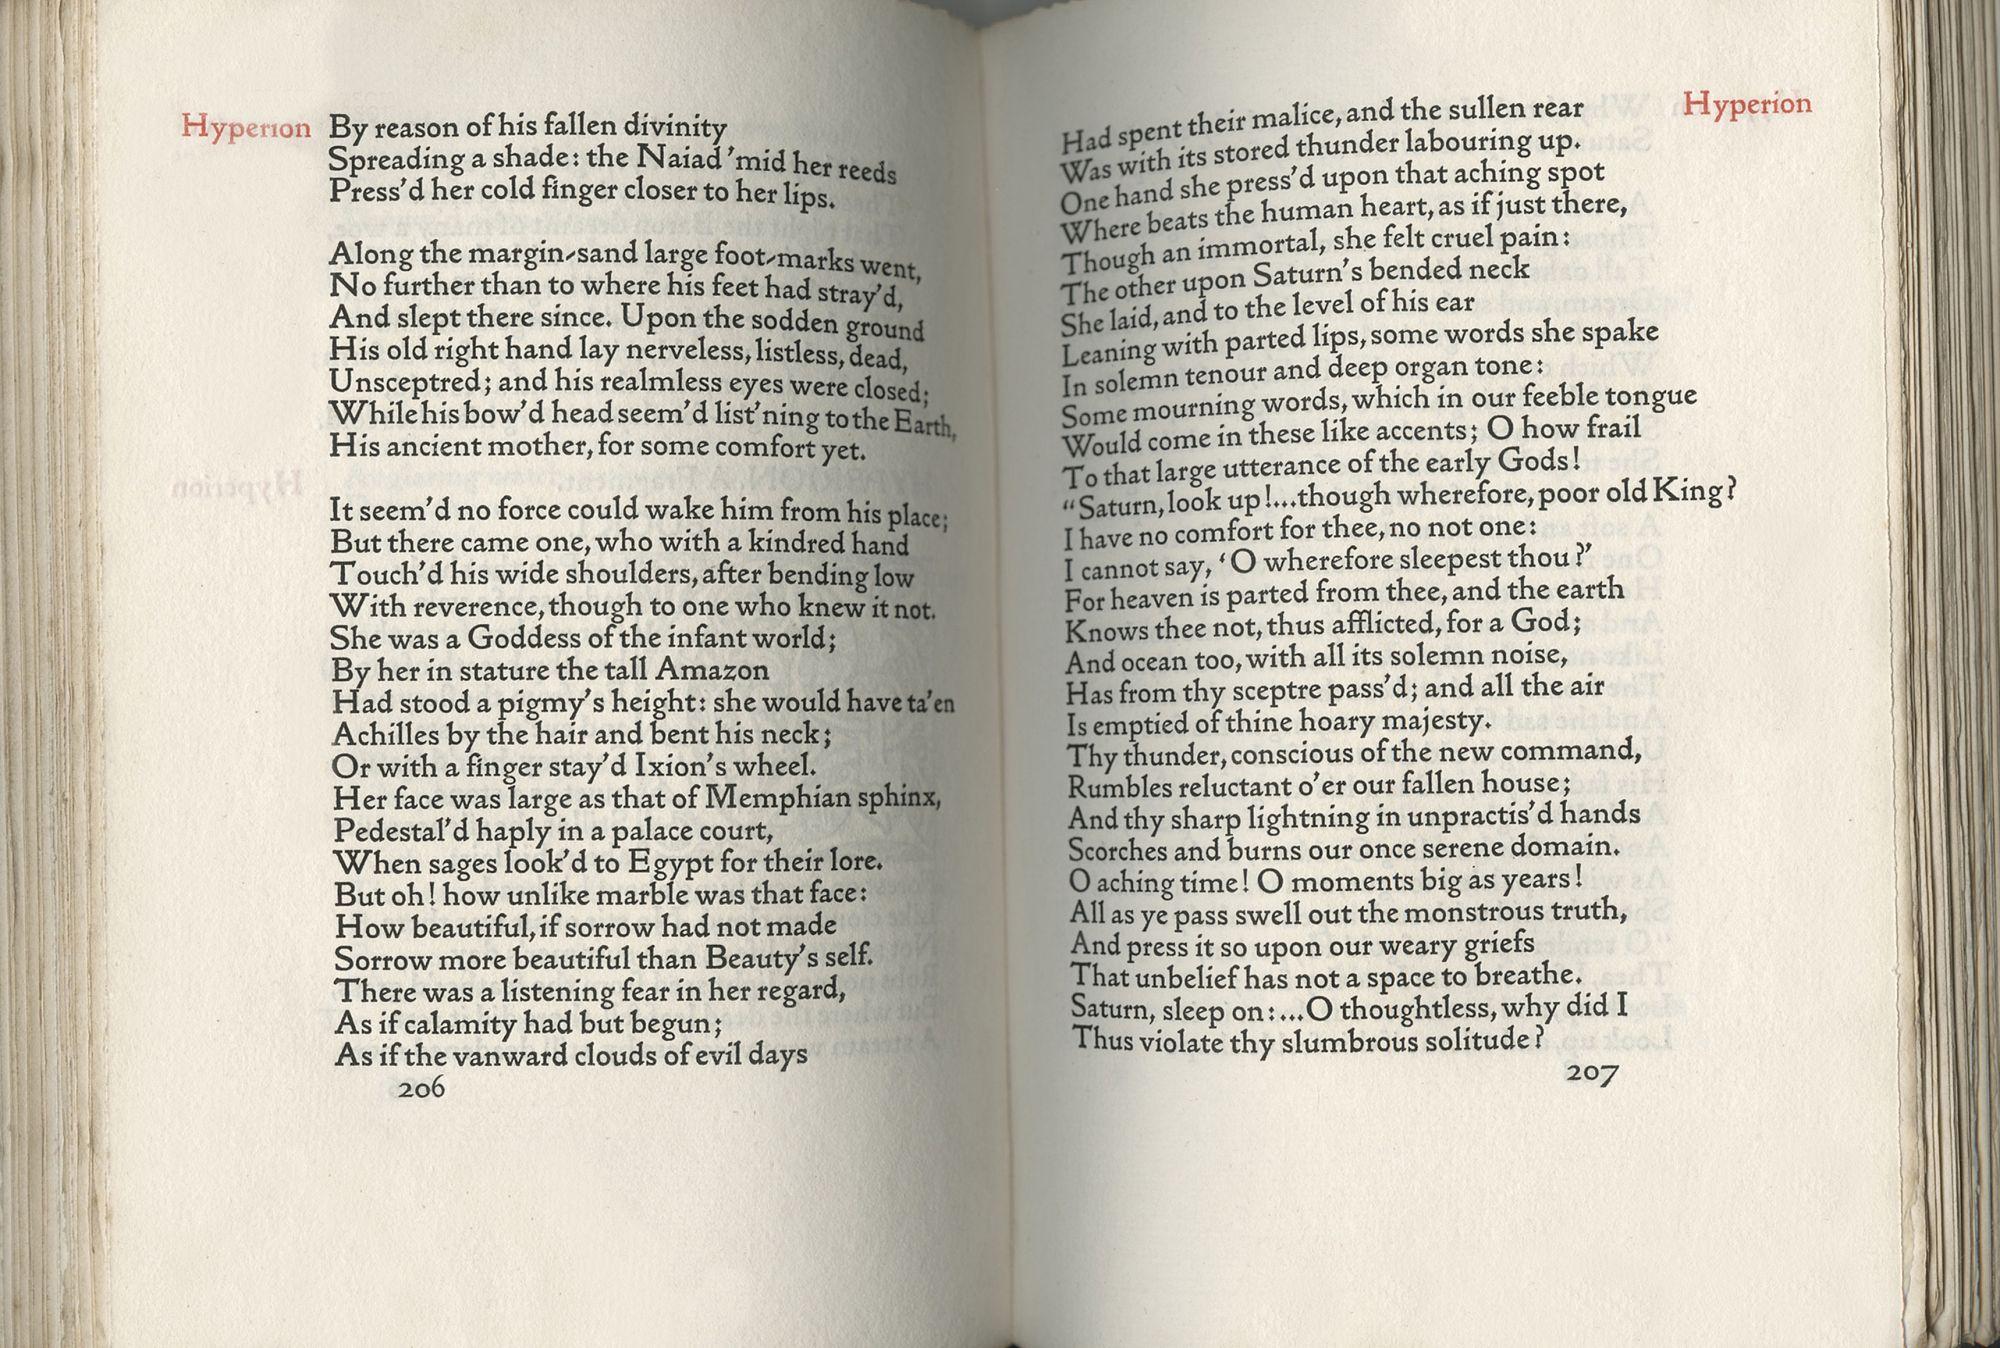 Hyperion By reason of his fallen divinity
Spreading a shade: the Naiad 'mid her reeds
Press'd her cold finger closer to her lips.
Along the margin-sand large foot-marks went,
No further than to where his feet had stray'd,
And slept there since. Upon the sodden ground
His old right hand lay nerveless, listless, dead,
Unsceptred; and his realmless eyes were closed;
While his bow'd head seem'd list'ning to the Earth,
His ancient mother, for some comfort yet.
It seem'd no force could wake him from his place;
But there came one, who with a kindred hand
Touch'd his wide shoulders, after bending low
With reverence, though to one who knew it not.
She was a Goddess of the infant world;
By her in stature the tall Amazon
Had stood a pigmy's height: she would have ta'en
Achilles by the hair and bent his neck;
Or with a finger stay'd Ixion's wheel.
Her face was large as that of Memphian sphinx,
Pedestal'd haply in a palace court,
When sages look'd to Egypt for their lore.
But oh! how unlike marble was that face:
How beautiful, if sorrow had not made
Sorrow more beautiful than Beauty's self.
There was a listening fear in her regard,
As if calamity had but begun;
As if the vanward clouds of evil days
206
Had spent their malice, and the sullen rear Hyperion
Was with its stored thunder labouring up.
One hand she press'd upon that aching spot
Where beats the human heart, as if just there,
Though an immortal, she felt cruel pain:
The other upon Saturn's bended neck
She laid, and to the level of his ear
Leaning with parted lips, some words she spake
In solemn tenour and deep organ tone:
Some mourning words, which in our feeble tongue
Would come in these like accents; O how frail
To that large utterance of the early Gods!
"Saturn, look up!...though wherefore, poor old King?
I have no comfort for thee, no not one:
I cannot say, 'O wherefore sleepest thou?'
For heaven is parted from thee, and the earth
Knows thee not, thus afflicted, for a God;
And ocean too, with all its solemn noise,
Has from thy sceptre pass'd; and all the air
Is emptied of thine hoary majesty.
Thy thunder, conscious of the new command,
Rumbles reluctant o'er our fallen house;
And thy sharp lightning in unpractis'd hands
Scorches and burns our once serene domain.
O aching time! O moments big as years!
All as ye pass swell out the monstrous truth,
And press it so upon our weary griefs
That unbelief has not a space to breathe.
Saturn, sleep on:...O thoughtless, why did I
Thus violate thy slumbrous solitude?
207